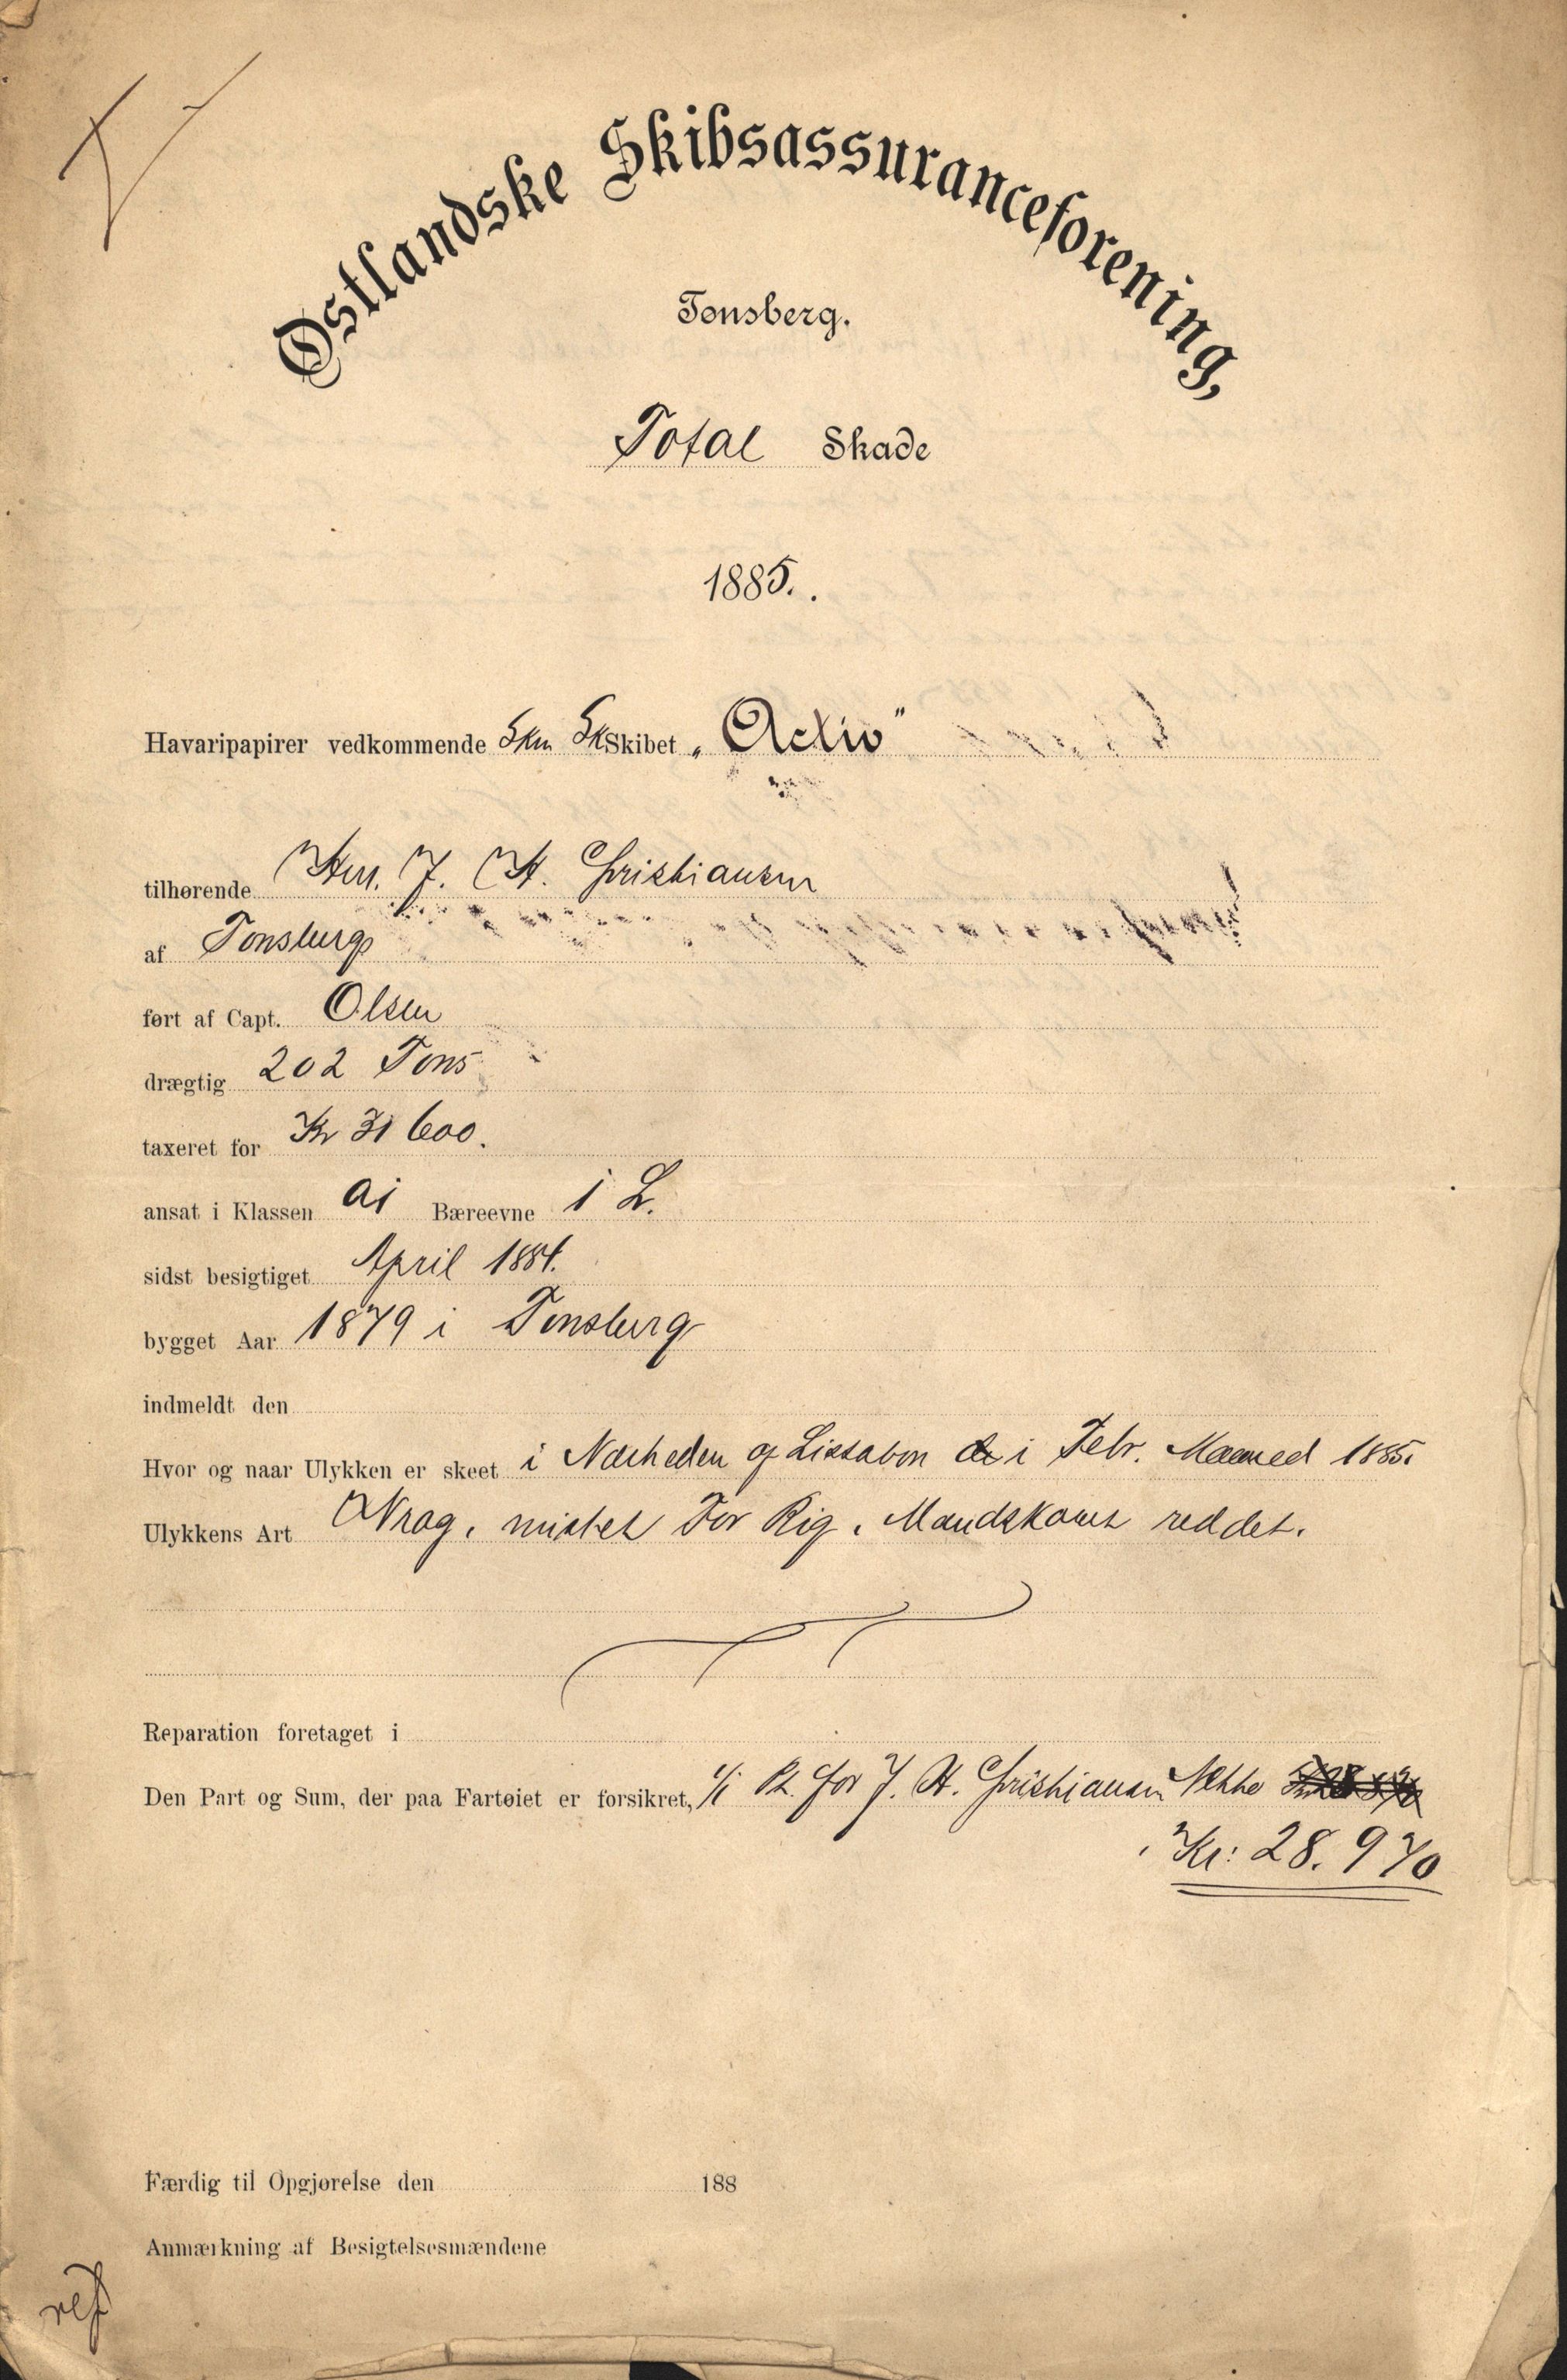 Østlandske Skibsassuranceforening,
Tønsberg.
Total Skade
1885.
Havaripapirer vedkommende Skn Sk Skibet „Activ"
tilhørende Herr. J. H. Christiansen
af Tønsberg
ført af Capt. Olsen
drægtig 202 Tons
taxeret for Kr 31 600.
ansat i Klassen A1 Bæreevne 1 L.
sidst besigtiget April 1884.
bygget Aar 1879 i Tønsberg
indmeldt den
Hvor og naar Ulykken er skeet i Nærheden af Lissabon i Febr. Maaned 1885.
Ulykkens Art Vrag, mistet For Rig, Mandskabet reddet.
Reparation foretaget i
Den Part og Sum, der paa Fartøiet er forsikret, 1/1 Pt. for J. H. Christiansen Netto
Kr: 28.970
Færdig til Opgjørelse den 188
Anmærkning af Besigtelsesmændene